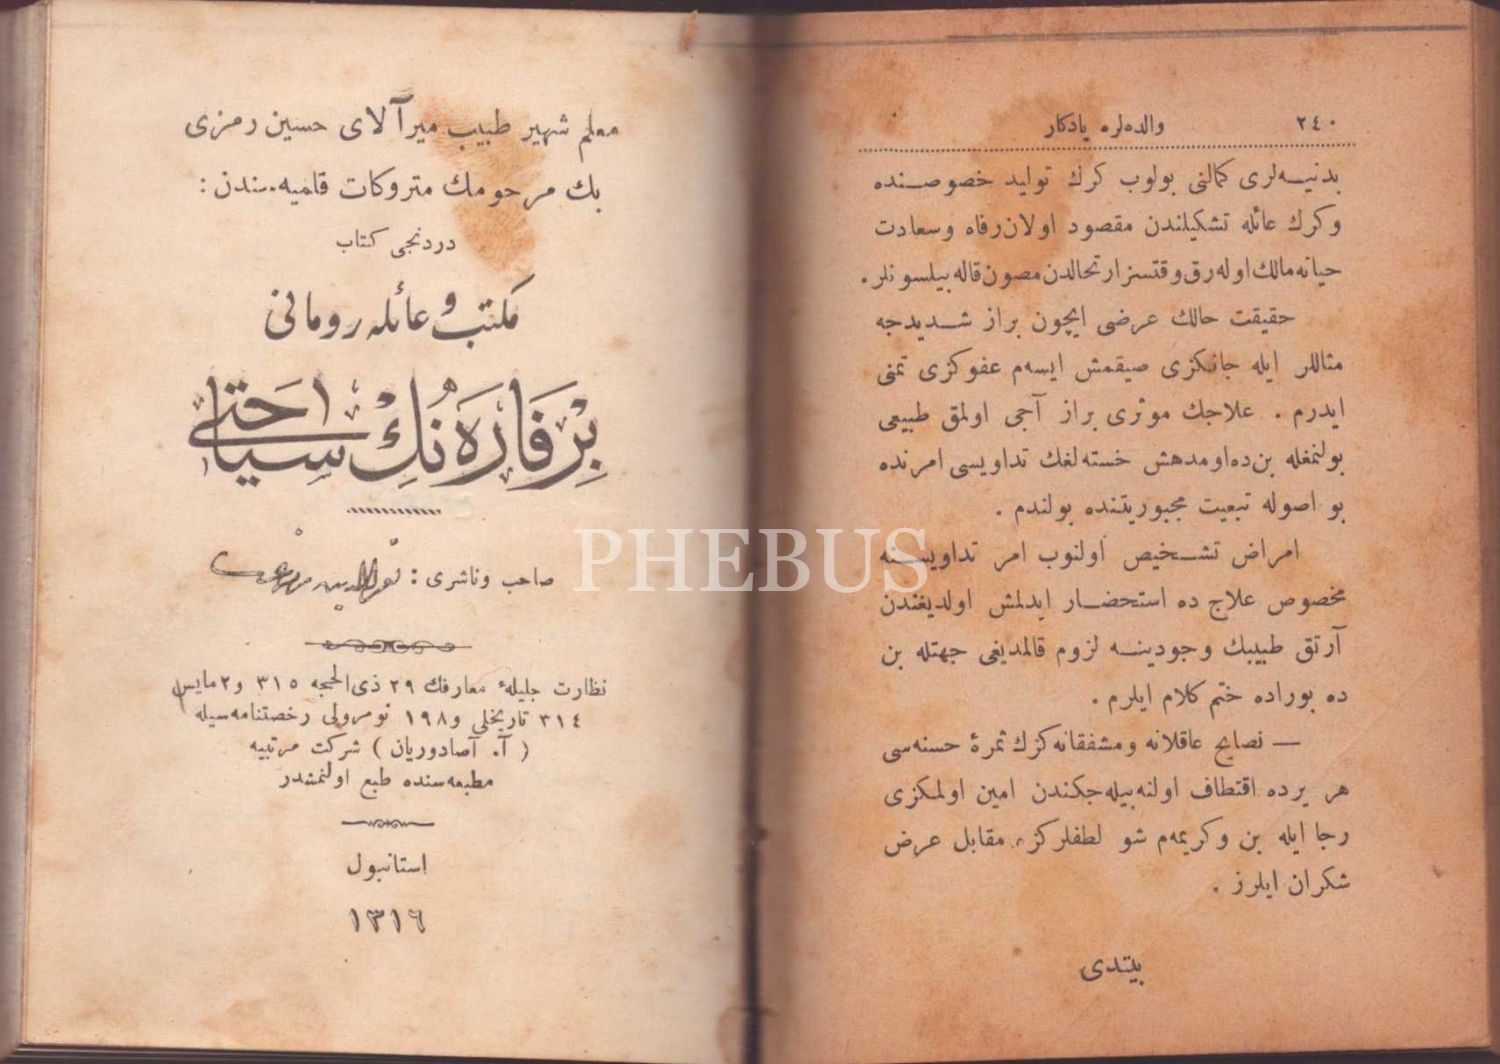 ٢٤٠ والده‌لره یادکار
بدنیه‌لری کمالنی بولوب کرك تولید خصوصنده
وکرك عائله تشکیلندن مقصود اولان رفاه وسعادت
حیاته مالك اوله‌رق وقتسز ارتحالدن مصون قاله بیلسونلر.
حقیقت حالك عرضی ایچون براز شدیدجه
مثاللر ایله جانکزی صیقمش ایسه‌م عفوکزی تمنی
ایدرم . علاجك موثری براز آجی اولمق طبیعی
بولنمغله بن‌ده اومدهش خسته‌لغك تداویسی امرنده
بو اصوله تبعیت مجبوریتنده بولندم .
امراض تشخیص اولنوب امر تداویسنه
مخصوص علاج ده استحضار ایدلمش اولدیغندن
آرتق طبیبك وجودینه لزوم قالمدیغی جهتله بن
ده بوراده ختم کلام ایلرم .
— نصایح عاقلانه ومشفقانه‌کزك ثمرۀ حسنه‌سی
هر یرده اقتطاف اولنه‌بیله‌جکندن امین اولمکزی
رجا ایله بن وکریمه‌م شو لطفلرکزه مقابل عرض
شکران ایلرز .
بیتدی
معلم شهیر طبیب میرآلای حسین رمزی
بك مرحومك متروکات قلمیه‌سندن :
دردنجی کتاب
مکتب و عائله رومانی
بِر فَارَه نُك سیاحَتی
صاحب وناشری :
نظارت جلیلۀ معارفك ٢٩ ذی‌الحجه ٣١٥ و٢ مایس
٣١٤ تاریخلی و١٩٨ نومرولی رخصتنامه‌سیله
( آ. آصادوریان ) شرکت مرتبیه
مطبعه‌سنده طبع اولنمشدر
استانبول
١٣١٦
PHEBUS